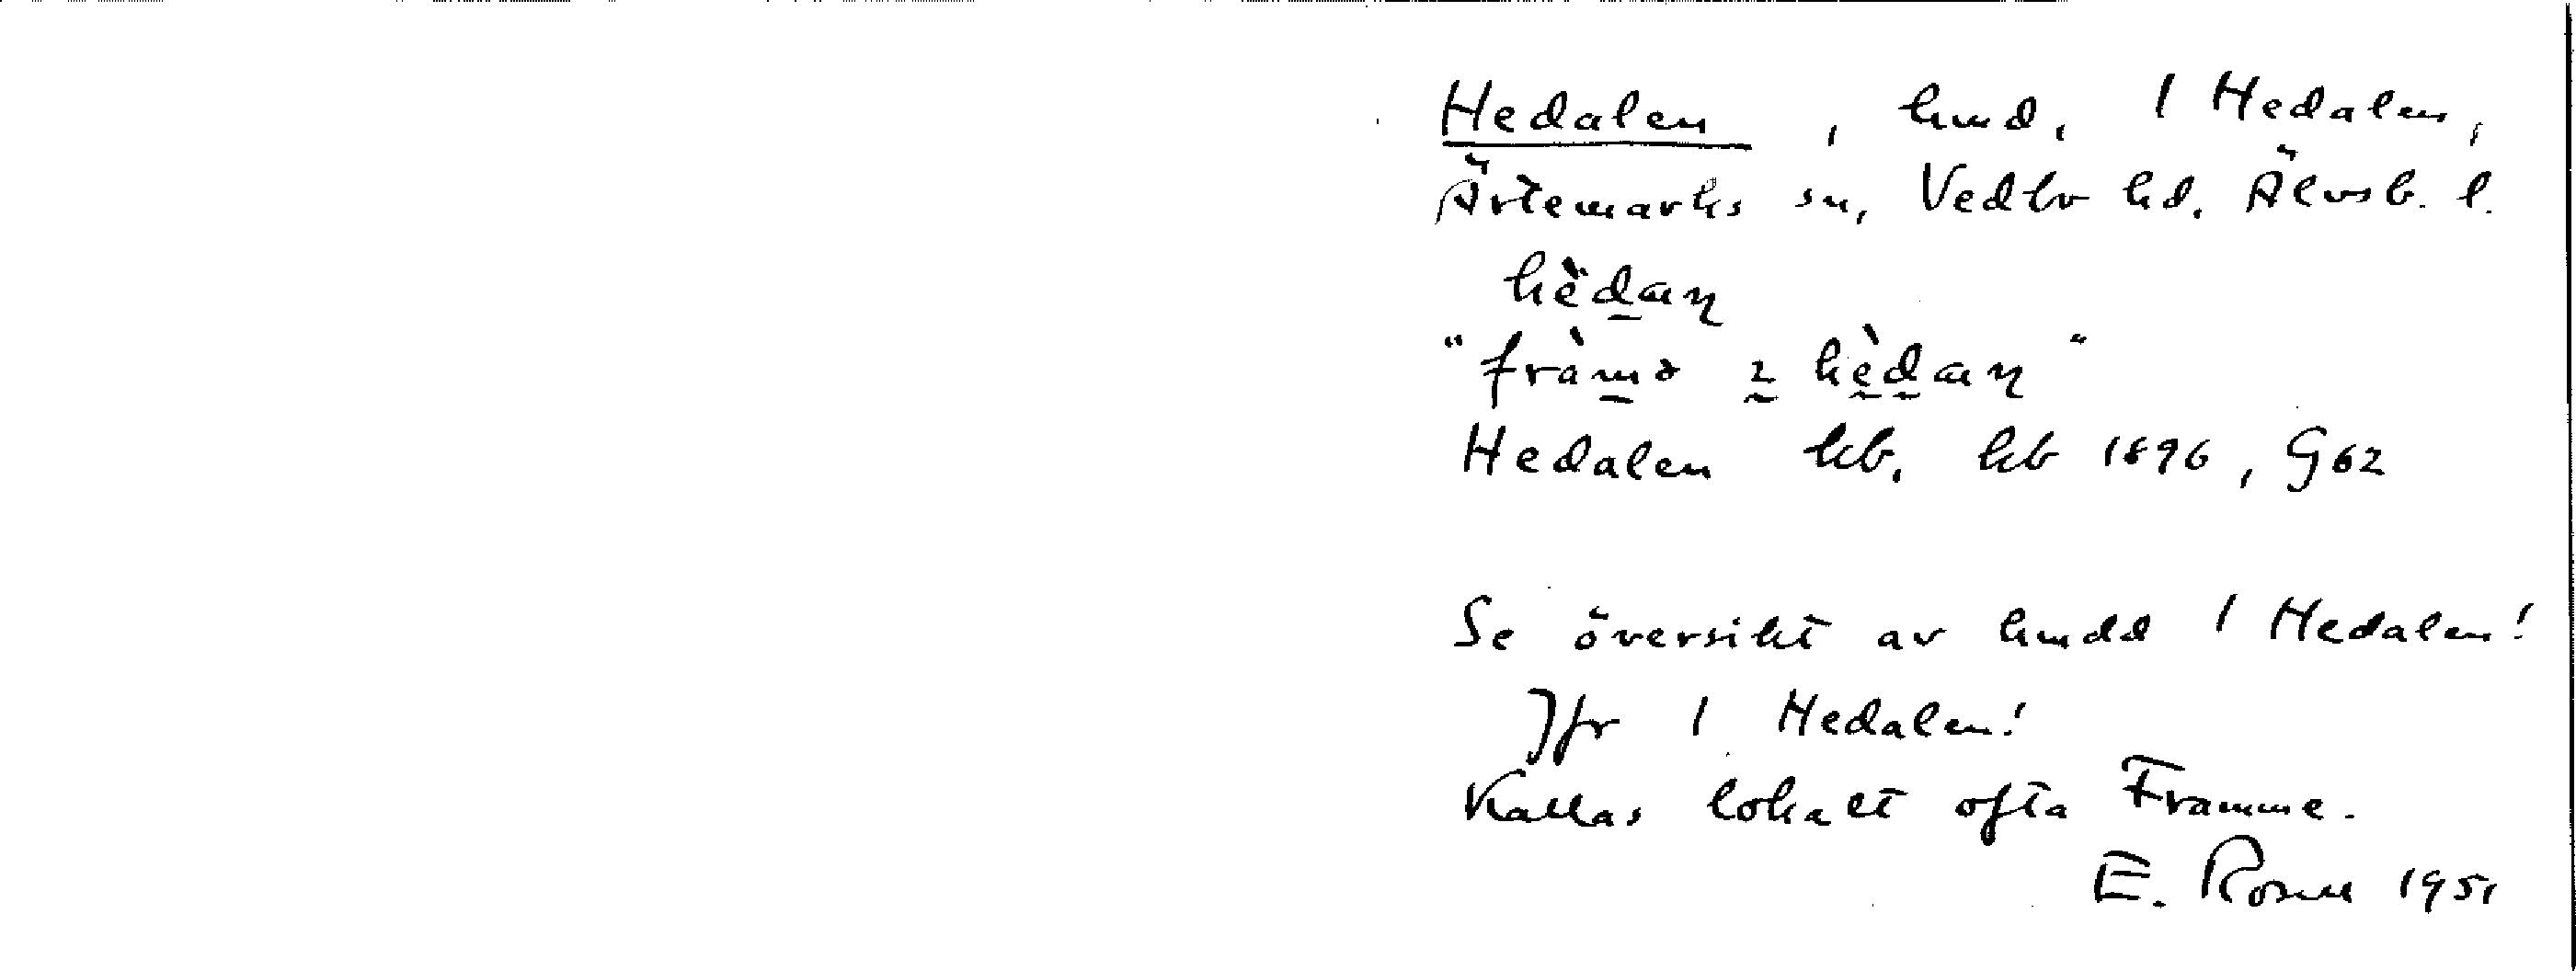 Hedalen, hmd. 1 Hedalen,
Ärtemarks sn, Vedbo hd. Älvsb. l.
hèdaɳ
"fràmə ı hèdaɳ"
Hedalen hb. hb 1896, G62
Se översikt av hmdd 1 Hedalen!
Jfr 1 Hedalen!
Kallas lokalt ofta Framme.
E. Rosell 1951